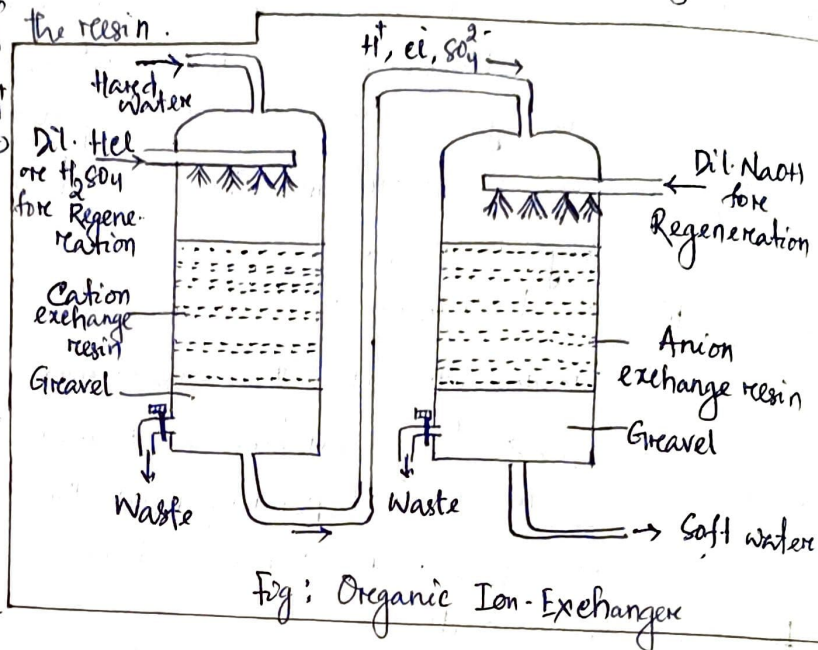 the reesin.
H⁺, cl⁻, SO₄²⁻
Hared
water
Dil. Hcl
ore H₂SO₄
fore Regene-
ration
Dil. NaOH
fore
Regeneration
Cation
exchange
resin
Anion
exchange resin
Greavel
Greavel
Waste
Waste
Soft water
Fig: Oreganic Ion-Exchanger